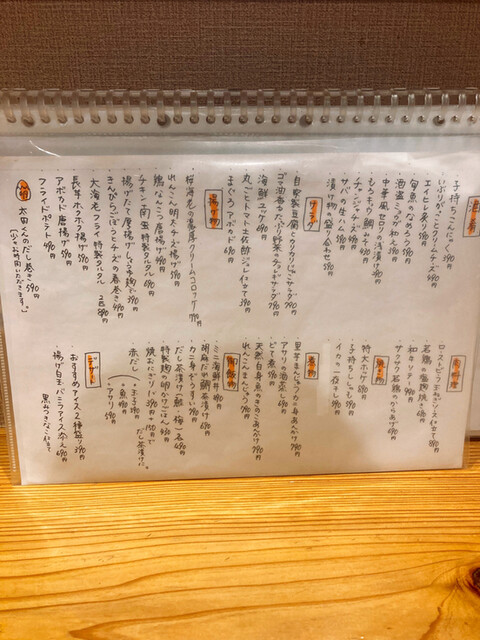 酒肴
・子持ちこんにゃく 390円
・いぶりがっことクリームチーズ 490円
・エイヒレ炙り 590円
・旬魚のなめろう 590円
・酒盗 390円
・中華風セロリの浅漬け 390円
・もろキュウ 390円
・チャンジャチーズ 490円
・サバの生ハム 590円
・漬け物の盛り合わせ 590円
サラダ
・自家製豆腐とカリカリじゃこサラダ 790円
・ゴマ油香るたっぷり野菜のチョレギサラダ 790円
・海鮮ユッケ 690円
・丸ごとトマト土佐酢ジュレ仕立て 390円
・まぐろアボカド 690円
揚げ物
・桜海老の濃厚クリームコロッケ 790円
・れんこん明太チーズ揚げ 590円
・鶏なんこつ唐揚げ 490円
・チキン南蛮特製タルタル 690円
・揚げたて厚揚げ 490円
・きんぴらごぼうとチーズの春巻き 490円
・大海老フライ特製タルタル 2匹 890円
・長芋ホクホク揚げ 590円
・アボカド唐揚げ 590円
・フライドポテト 490円
太田くんのだし巻き 590円
・ローストビーフ
・若鶏の塩麹焼き 690円
・和牛 990円
・ザクザク若鶏のからあげ 690円
・特大ホッケ 890円
・子持ちししゃも 390円
・イカの一夜干し 590円
・里芋まんじゅうカニ身あんかけ 790円
・アサリの酒蒸し 690円
・どて煮 590円
・天然白身魚のきのこあんかけ 790円
・れんこまんじゅう 590円
・ミニ海鮮丼 890円
・胡麻だれ鯛茶漬け 690円
・カニ身ぞうすい 590円
・だし茶漬け（鮭・梅）各 490円
・特製麹の卵かけごはん 490円
・焼おにぎり 390円 +150円でだし茶漬けに。
・赤だし
・玉子 390円
・魚 390円
・アサリ 390円
デザート
・おすすめアイス2種盛り 390円
・揚げ白玉バニラアイス添え 490円
黒みつきなこ仕立て